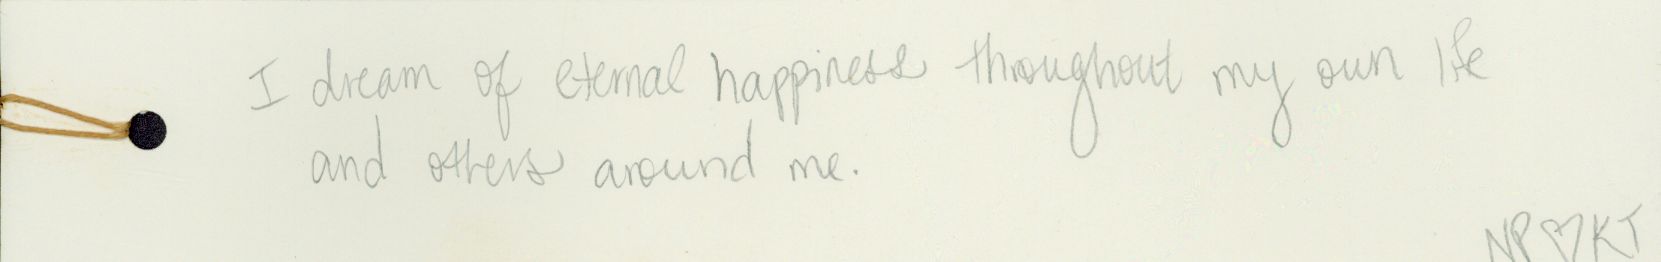 I dream of eternal happiness throughout my own life
and others around me.
NP♡KT